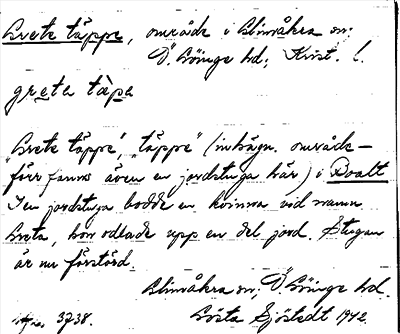 Greta täppe, område i Glimåkra sn;
Ö. Göinge hd; Krist. l.
greta tàpa
"Greta täppe", "täppe" (inhägn. område -
förr fanns även en jordstuga här) i Boalt
I en jordstuga bodde en kvinna vid namn
Greta, hon odlade upp en del jord. Stugan
är nu förstörd.
Glimåkra sn, Ö. Göinge hd.
3738. Gösta Sjöstedt 1942.